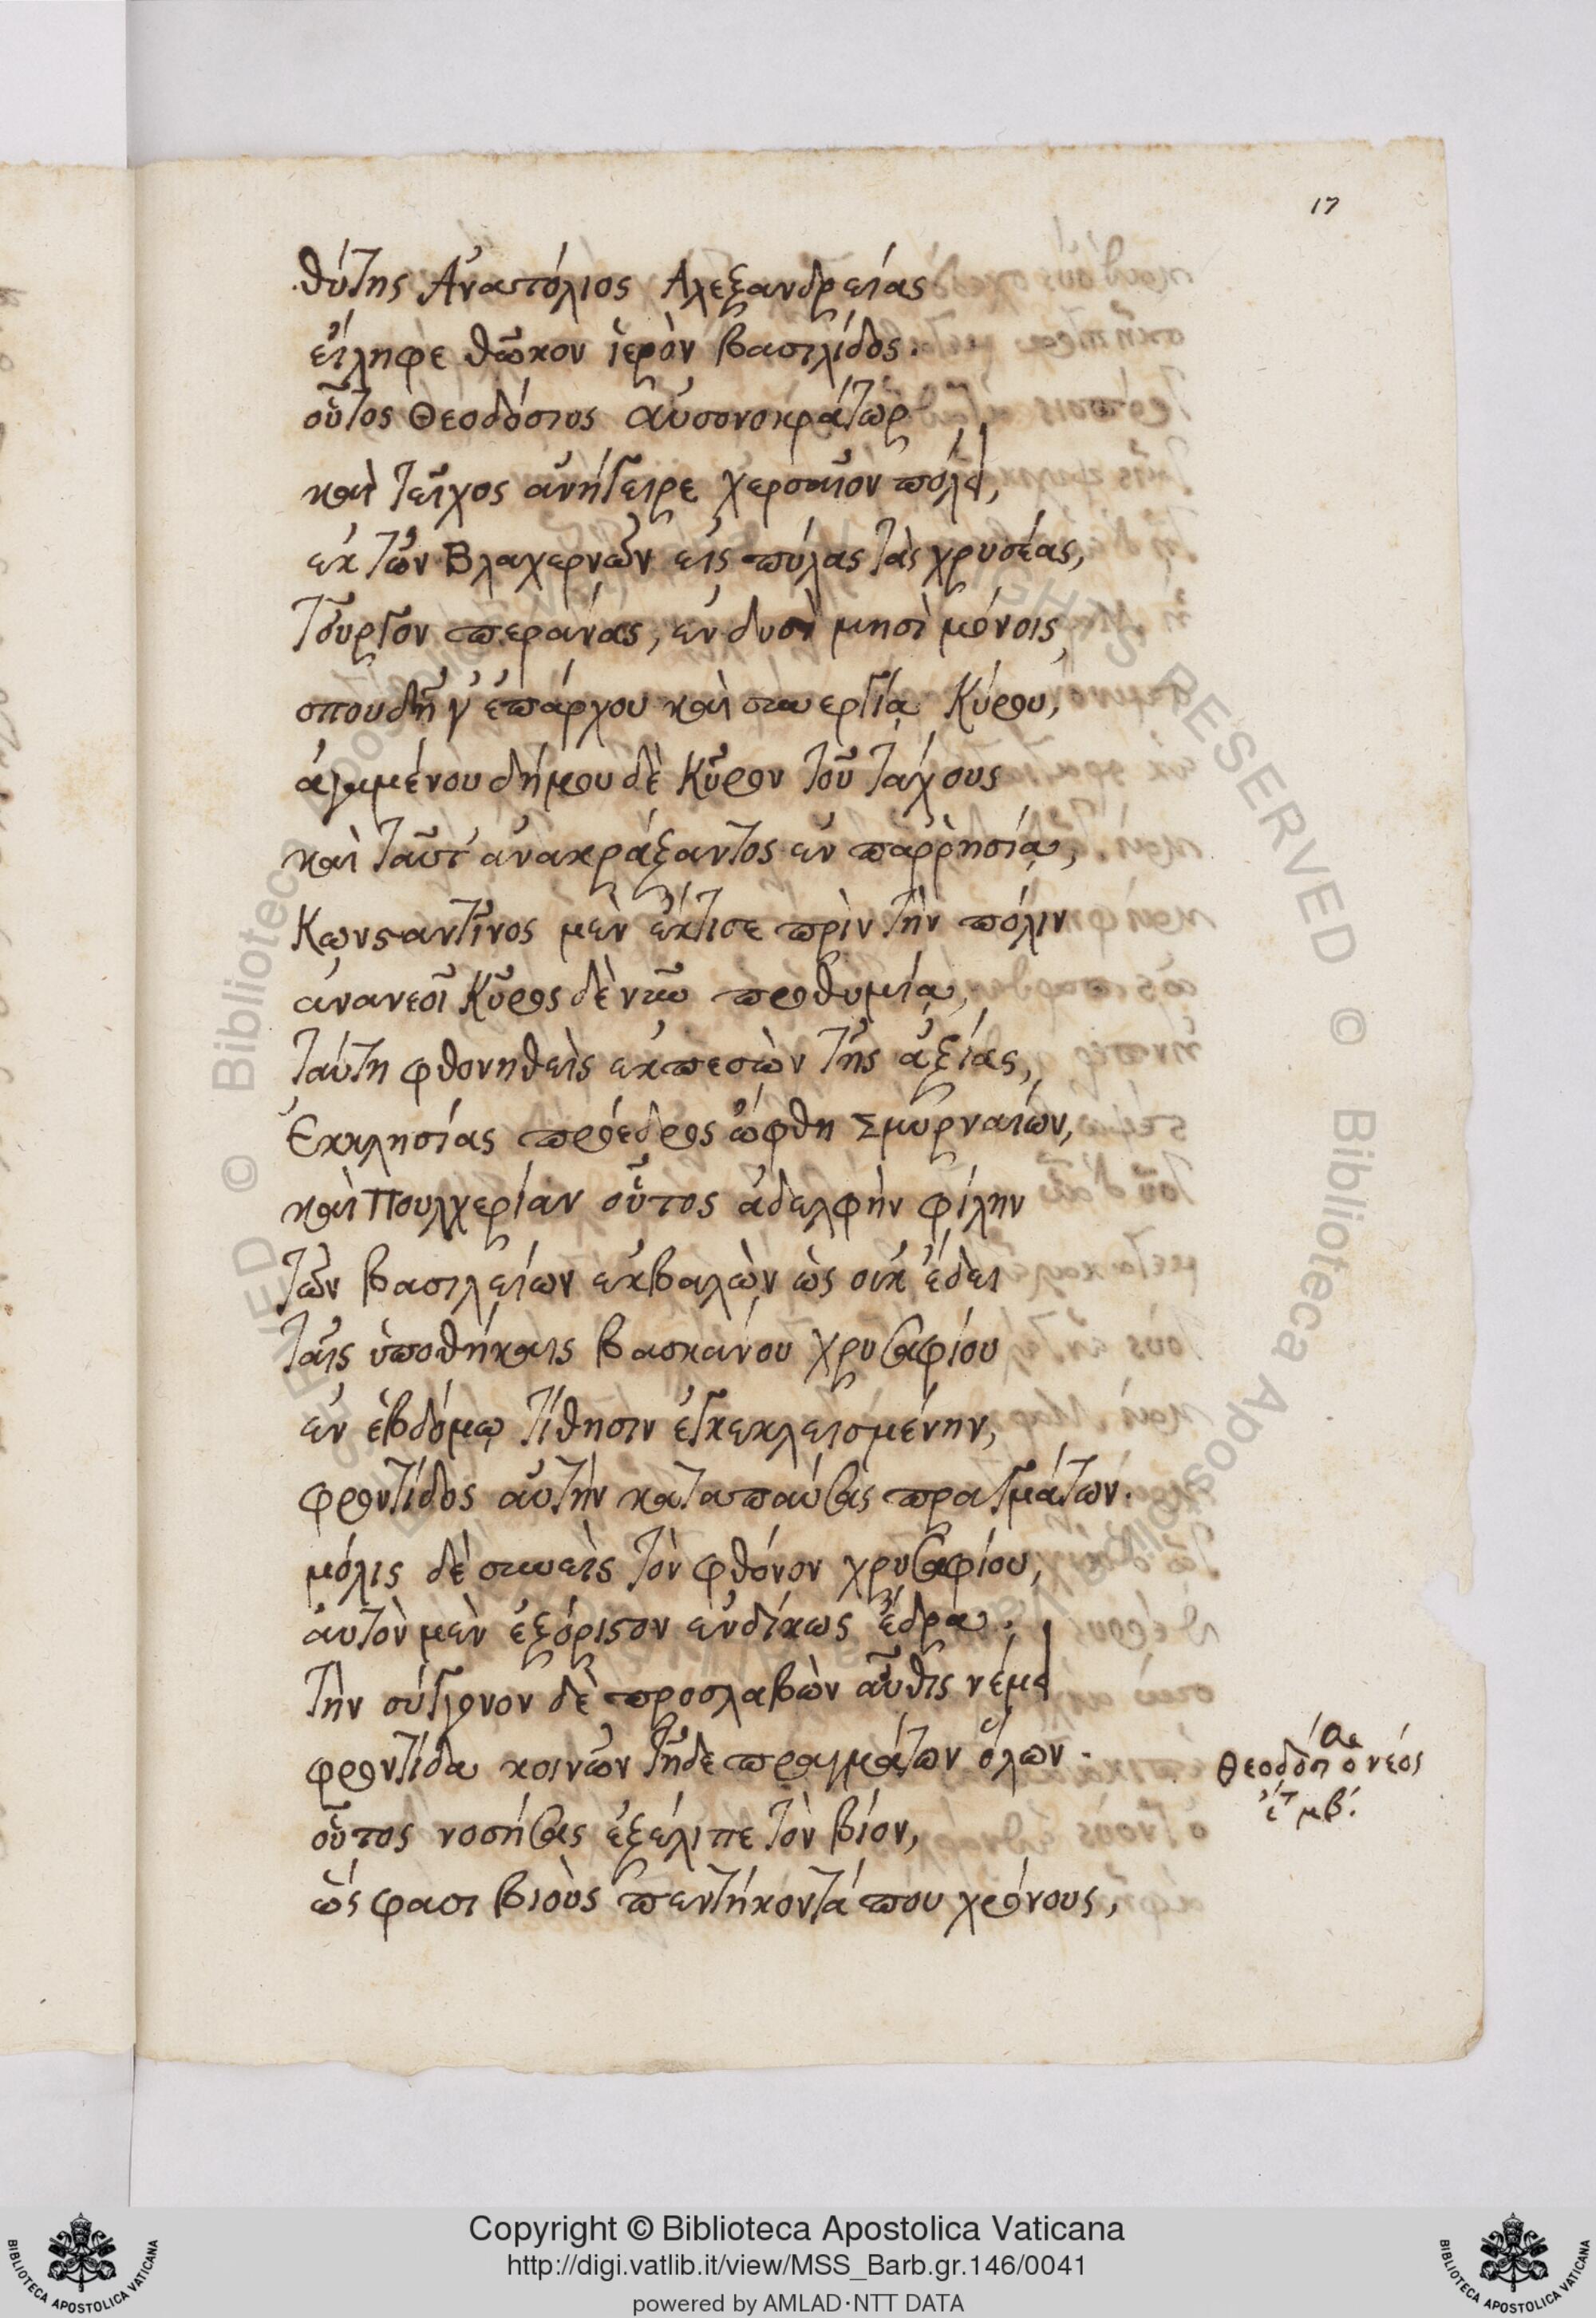 17
θύτης Ἀνατόλιος Ἀλεξανδρείας
εἴληφε θῶκον ἱερὸν βασιλίδος.
οὗτος Θεοδόσιος αὐσονοκράτωρ
καὶ τεῖχος ἀνήγειρε χερσαῖον πόλει,
ἐκ τῶν Βλαχερνῶν εἰς πύλας τὰς χρυσέας,
τοὖργον περάνας, ἐν δυσὶ μησὶ μόνοις,
σπουδῇ γ' ἐπάρχου καὶ συνεργίᾳ Κύρου,
ἀγαμένου δήμου δὲ Κῦρον τοῦ τάχους
καὶ ταῦτ' ἀνακράξαντος ἐν παῤῥησίᾳ,
Κωνσταντῖνος μὲν ἔκτισε πρὶν τὴν πόλιν
ἀνανεοῖ Κῦρος δὲ νῦν προθυμίᾳ,
ταύτῃ φθονηθεὶς ἐκπεσὼν τῆς ἀξίας,
Ἐκκλησίας πρόεδρος ὤφθη Σμυρναίων,
καὶ Πουλχερίαν οὗτος ἀδελφὴν φίλην
τῶν βασιλείων ἐκβαλὼν ὡς οὐκ ἔδει
ταῖς ὑποθήκαις βασκάνου χρυσαφίου
ἐν ἑβδόμῳ τίθησιν ἐγκεκλεισμένην,
φροντίδος αὐτὴν καταπαύσας πραγμάτων.
μόλις δὲ συνεὶς τὸν φθόνον χρυσαφίου,
αὐτὸν μὲν ἐξόριστον ἐνδίκως ἔδρα.
τὴν σύγγονον δὲ προσλαβὼν αὖθις νέμει
φροντίδα κοινῶν τῇδε πραγμάτων ὅλων.
οὗτος νοσήσας ἐξέλιπε τὸν βίον,
ὥς φασι βιοὺς πεντήκοντά που χρόνους,
ὁ νέος
μβ΄.
Copyright © Biblioteca Apostolica Vaticana
http://digi.vatlib.it/view/MSS_Barb.gr.146/0041
powered by AMLAD·NTT DATA